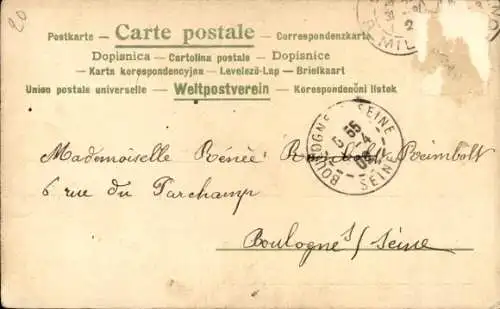 20
Postkarte - Carte postale - Correspondenzkarte
Dopisnica - Cartolina postale - Dopisnice
- Karta korespondencyjna - Levelező-Lap - Briefkaart
Union postale universelle - Weltpostverein - Korespondenční listek
MIL
BOULOGNE S SEINE
5 55
-4
SEINE
Mademoiselle Rénée Reimbolt
6 rue du Parchamp
Boulogne s/ Seine